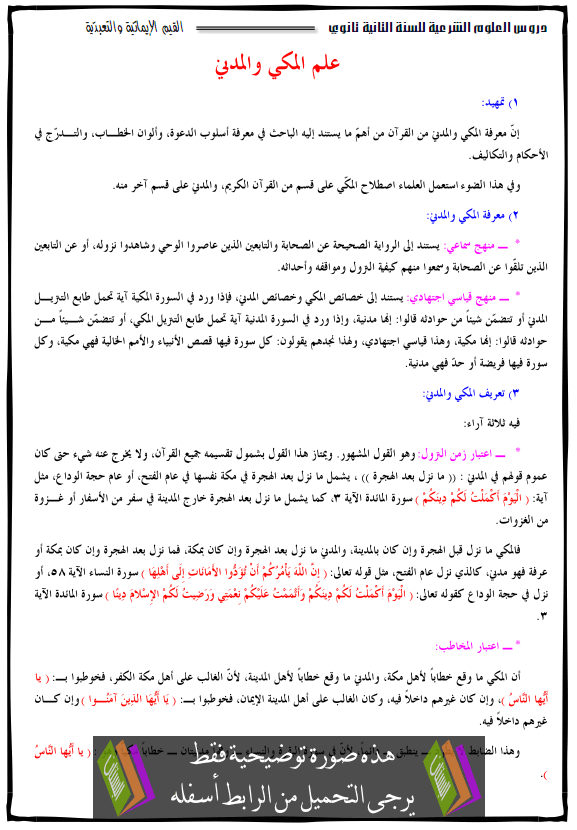 دروس العلوم الشرعية للسنة الثانية ثانوي القيم الإيمانية والتعبدية
علم المكي والمدني
١) تمهيد:
إنّ معرفة المكي والمدنيّ من القرآن من أهمّ ما يستند إليه الباحث في معرفة أسلوب الدعوة، وألوان الخطاب، والتدرّج في
الأحكام والتكاليف.
وفي هذا الضوء استعمل العلماء اصطلاح المكّي على قسم من القرآن الكريم، والمدنيّ على قسم آخر منه.
٢) معرفة المكي والمدنيّ:
* ــ منهج سماعي: يستند إلى الرواية الصحيحة عن الصحابة والتابعين الذين عاصروا الوحي وشاهدوا نزوله، أو عن التابعين
الذين تلقّوا عن الصحابة وسمعوا منهم كيفية النزول ومواقفه وأحداثه.
* ــ منهج قياسي اجتهادي: يستند إلى خصائص المكي وخصائص المدنيّ، فإذا ورد في السورة المكية آية تحمل طابع التنزيل
المدنيّ أو تتضمّن شيئاً من حوادثه قالوا: إنها مدنية، وإذا ورد في السورة المدنية آية تحمل طابع التنزيل المكي، أو تتضمّن شيئاً من
حوادثه قالوا: إنها مكية، وهذا قياسي اجتهادي، ولهذا نجدهم يقولون: كل سورة فيها قصص الأنبياء والأمم الخالية فهي مكية، وكل
سورة فيها فريضة أو حدّ فهي مدنية.
٣) تعريف المكي والمدنيّ:
فيه ثلاثة آراء:
* ــ اعتبار زمن النزول: وهو القول المشهور. ويمتاز هذا القول بشمول تقسيمه جميع القرآن، ولا يخرج عنه شيء حتى كان
عموم قولهم في المدنيّ : (( ما نزل بعد الهجرة )) ، يشمل ما نزل بعد الهجرة في مكة نفسها في عام الفتح، أو عام حجة الوداع، مثل
آية: ( الْيَوْمَ أَكْمَلْتُ لَكُمْ دِينَكُمْ ) سورة المائدة الآية ٣، كما يشمل ما نزل بعد الهجرة خارج المدينة في سفر من الأسفار أو غزوة
من الغزوات.
فالمكي ما نزل قبل الهجرة وإن كان بالمدينة، والمدنيّ ما نزل بعد الهجرة وإن كان بمكة، فما نزل بعد الهجرة وإن كان بمكة أو
عرفة فهو مدنيّ، كالذي نزل عام الفتح، مثل قوله تعالى: ( إِنَّ اللَّهَ يَأْمُرُكُمْ أَنْ تُؤَدُّوا الأَمَانَاتِ إِلَى أَهْلِهَا ) سورة النساء الآية ٥٨، أو
نزل في حجة الوداع كقوله تعالى: ( الْيَوْمَ أَكْمَلْتُ لَكُمْ دِينَكُمْ وَأَتْمَمْتُ عَلَيْكُمْ نِعْمَتِي وَرَضِيتُ لَكُمُ الإِسْلامَ دِينًا ) سورة المائدة الآية
٣.
* ــ اعتبار المخاطب:
أن المكي ما وقع خطاباً لأهل مكة، والمدنيّ ما وقع خطاباً لأهل المدينة، لأنّ الغالب على أهل مكة الكفر، فخوطبوا بـ: ( يا
أَيُّهَا النَّاسُ )، وإن كان غيرهم داخلاً فيه، وكان الغالب على أهل المدينة الإيمان، فخوطبوا بـ: ( يَا أَيُّهَا الذِينَ آمَنُوا ) وإن كان
غيرهم داخلاً فيه.
وهذا الضابط ( يا أَيُّها النَّاسُ
).
هذه صورة توضيحية فقط
يرجى التحميل من الرابط أسفله